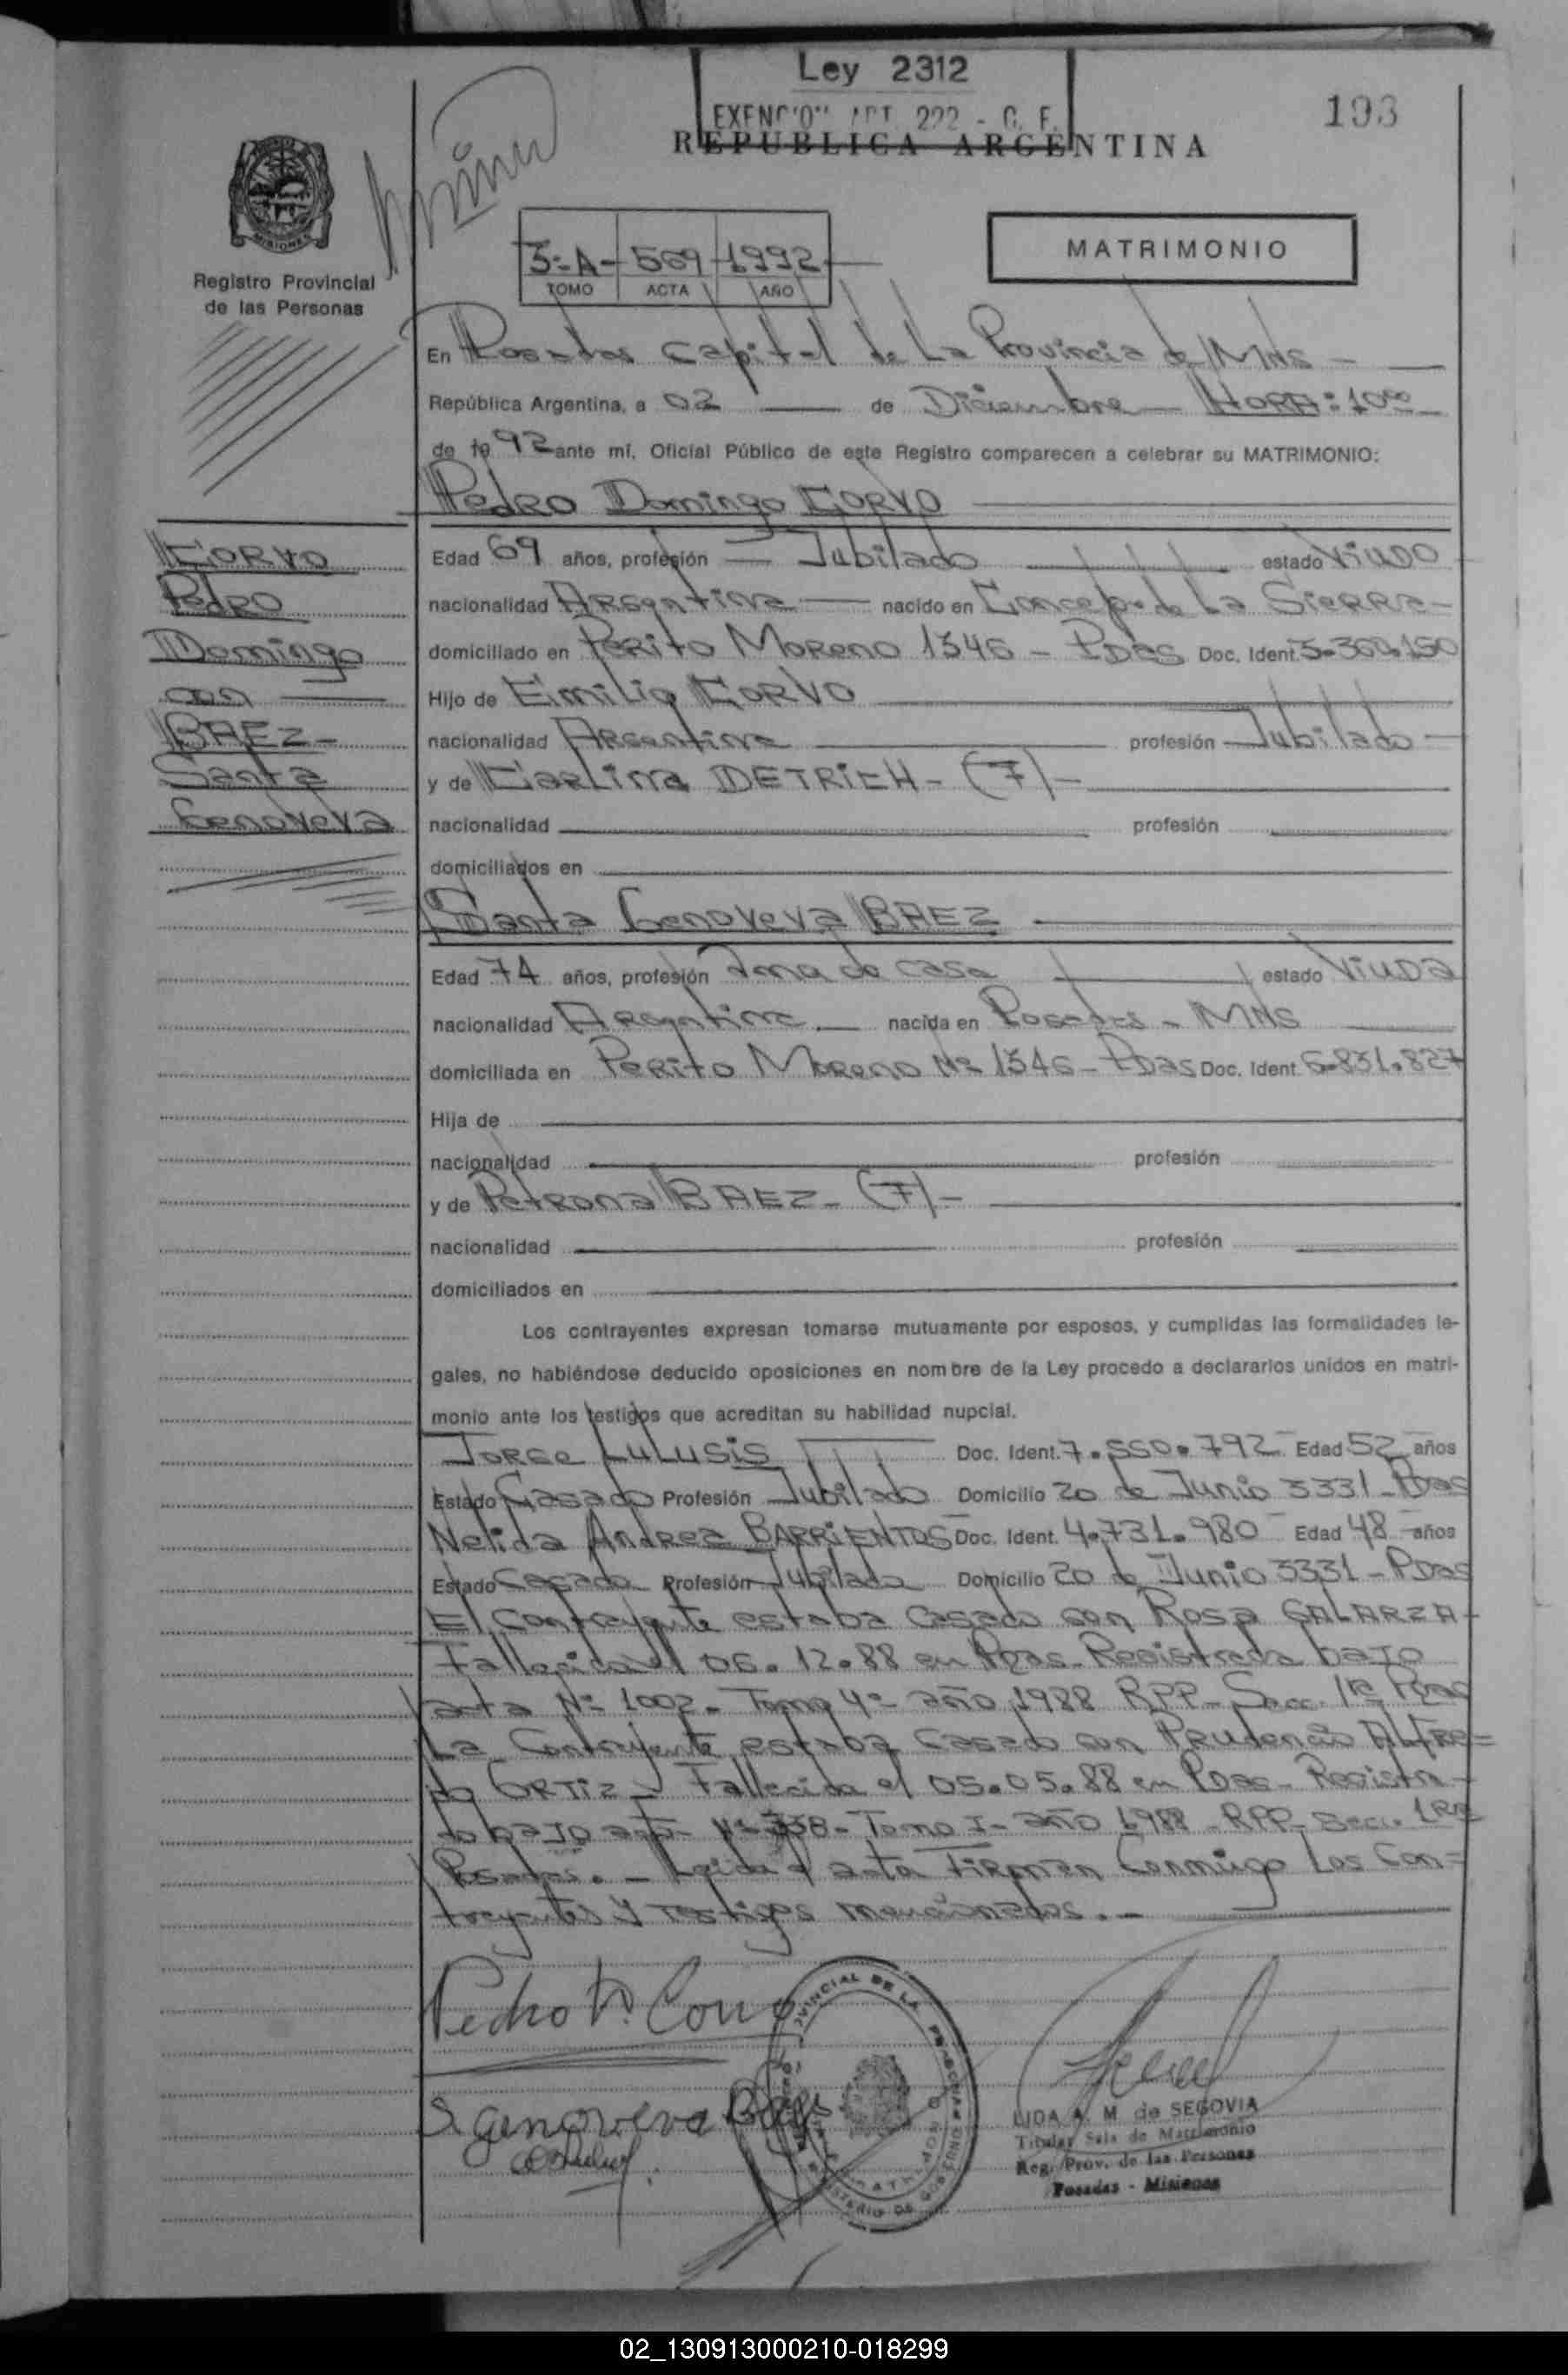 Ley 2312
EXENCION ART. 222 - C. F.
193
REPUBLICA ARGENTINA
MISIONES
Registro Provincial
de las Personas
3º-A- 569 1992
TOMO ACTA AÑO
MATRIMONIO
En Posadas Capital de La Provincia de MNS -
República Argentina, a 02 de Diciembre - HORA: 10ºº
de 1992 ante mí, Oficial Público de este Registro comparecen a celebrar su MATRIMONIO:
Pedro Domingo CORVO
CORVO
Pedro
Domingo
con
BAEZ-
Santa
Genoveva
Edad 69 años, profesión Jubilado estado Viudo
nacionalidad Argentina nacido en Concep. de La Sierra-
domiciliado en Perito Moreno 1346 - Pdas Doc. Ident. 3.360.150
Hijo de Emilio CORVO
nacionalidad Argentina profesión Jubilado
y de Carlina DETRICH - (F) -
nacionalidad profesión
domiciliados en
Santa Genoveva BAEZ
Edad 74 años, profesión Ama de casa estado Viuda
nacionalidad Argentina nacida en Posadas - MNS
domiciliada en Perito Moreno Nº 1346 - Pdas Doc. Ident. 6.831.827
Hija de
nacionalidad profesión
y de Petrona BAEZ - (F) -
nacionalidad profesión
domiciliados en
Los contrayentes expresan tomarse mutuamente por esposos, y cumplidas las formalidades le-
gales, no habiéndose deducido oposiciones en nombre de la Ley procedo a declararlos unidos en matri-
monio ante los testigos que acreditan su habilidad nupcial.
Jorge LULUSIS Doc. Ident. 7.550.792 Edad 52 años
Estado Casado Profesión Jubilado Domicilio 20 de Junio 3331 - Pdas
Nelida Andrea BARRIENTOS Doc. Ident. 4.731.980 Edad 48 años
Estado Casada Profesión Jubilada Domicilio 20 de Junio 3331 - Pdas
El Contrayente estaba Casado con Rosa GALARZA-
Fallecida el 06.12.88 en Pdas- Registrada bajo
acta Nº 1002- Tomo 4º- año 1988 RPP- Secc. 1ra Pdas
La Contrayente estaba Casada con Prudencio Alfre=
do ORTIZ - Fallecido el 05.05.88 en Pdas- Registra-
do bajo acta- Nº 338- Tomo I- año 1988 - RPP- Secc. 1RA
Posadas. - Leida el acta Firman Conmigo Los Con=
trayentes y Testigos mencionados. -
Pedro D. Corvo
S. genoveva Baez
LIDA A. M. de SEGOVIA
Titular Sala de Matrimonio
Reg. Prov. de las Personas
Posadas - Misiones
02_130913000210-018299